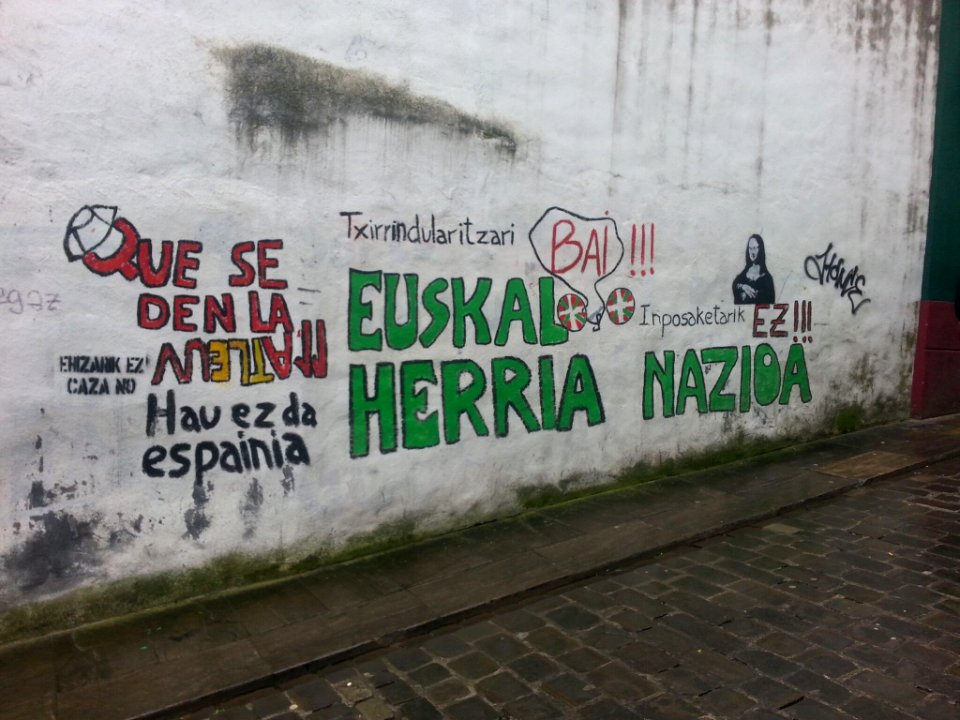 QUE SE
DEN LA
VUELTA
EHIZARIK EZ
CAZA NO
Hau ez da
espainia
Txirrindularitzari BAI !!!
Inposaketarik EZ!!!
EUSKAL
HERRIA NAZIOA